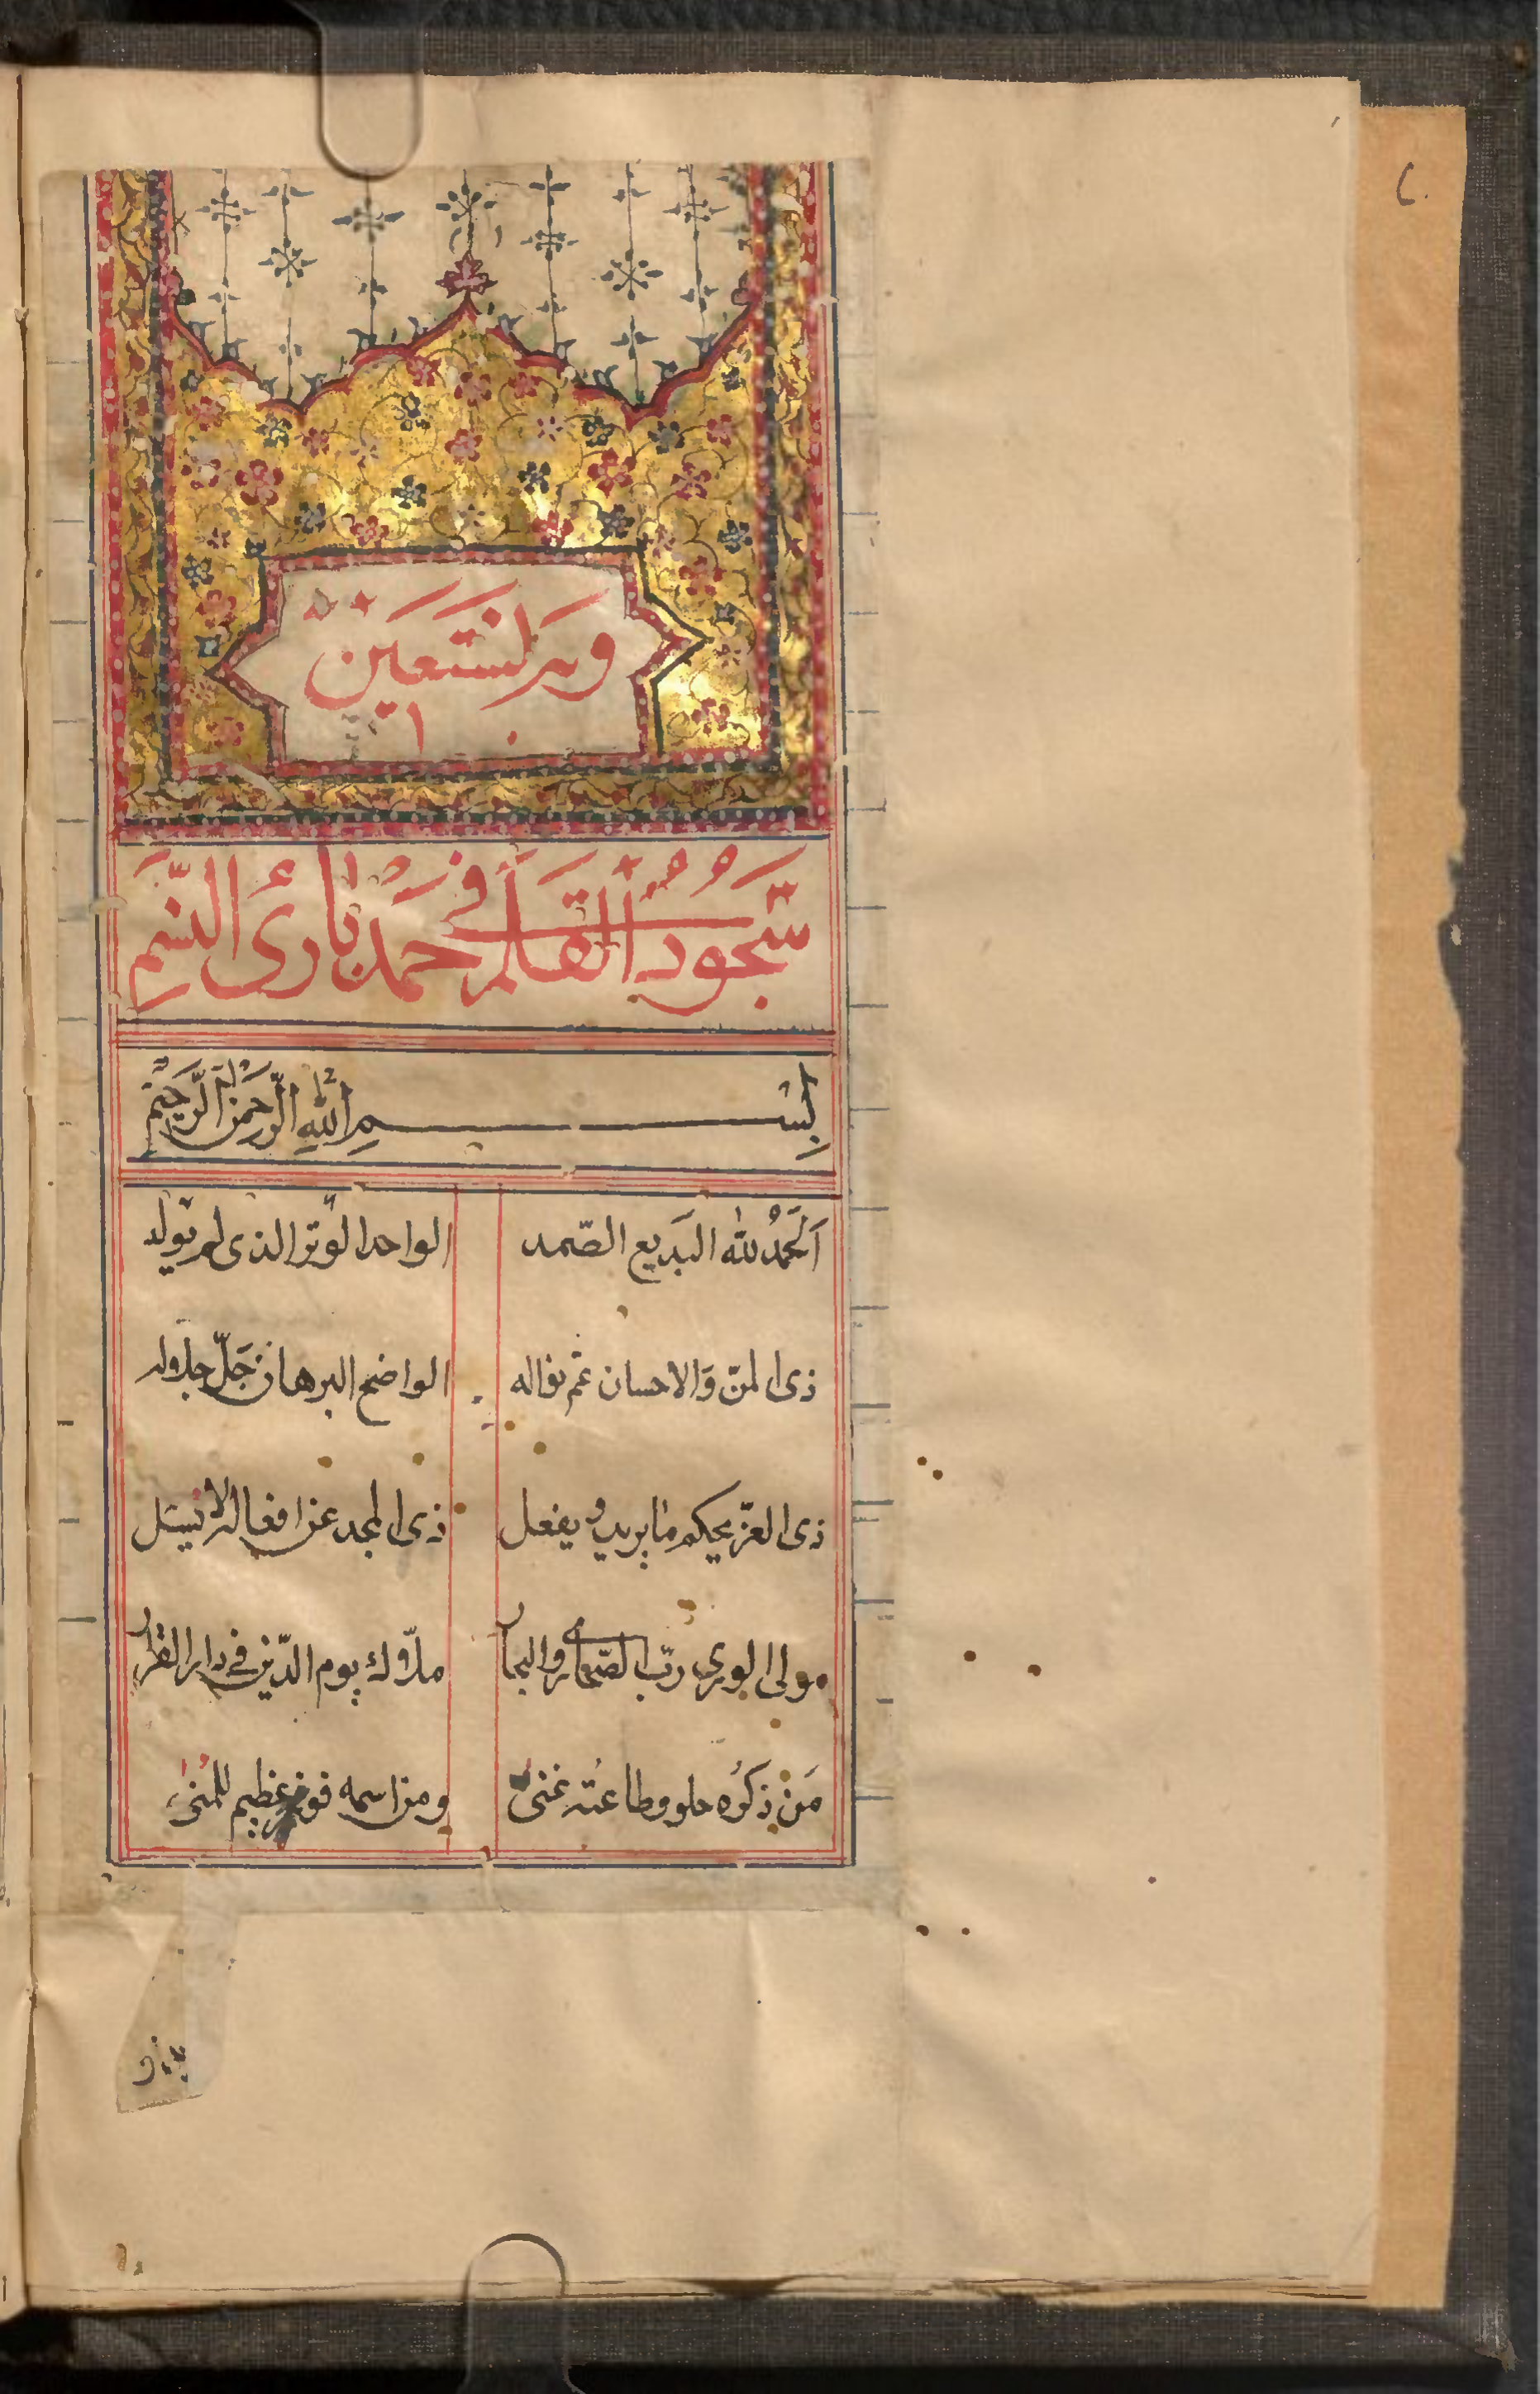 وبه نستعين
سُجُودُ القَلَم في حَمْدِ بَارِئ النَّسَم
بِسْمِ اللهِ الرَّحْمنِ الرَّحِيْمِ
اَلْحَمْدُ لله البَديع الصّمد الواحد الوتر الذى لم يولد
ذى المنّ وَالاحسان عَمّ نواله الواضح البرهان جَلّ جلاله
ذى العزّ يحكم ما يريد و يفعل ذى المجد عن افعاله لا يُسئل
مولى الورى ربّ الصّحارى والبحار ملاّك يوم الدّين فى دار القرار
مَن ذكرُه حلو وطاعتُه غنىً ومن اسمه فوز عظيم للمُنى